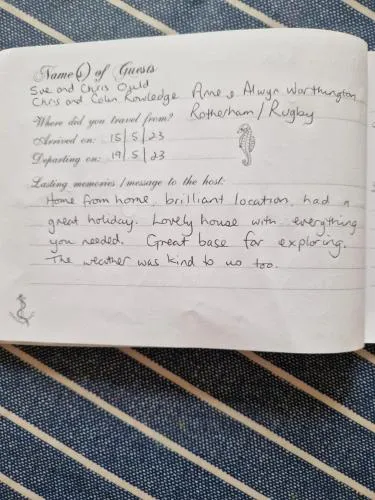 Name(s) of Guests
Sue and Chris Ould
Chris and Colin Rowledge Anne & Alwyn Worthington
Where did you travel from? Rotherham / Rugby
Arrived on: 15 / 5 / 23
Departing on: 19 / 5 / 23
Lasting memories / message to the host:
Home from home, brilliant location, had a
great holiday. Lovely house with everything
you needed. Great base for exploring.
The weather was kind to us too.